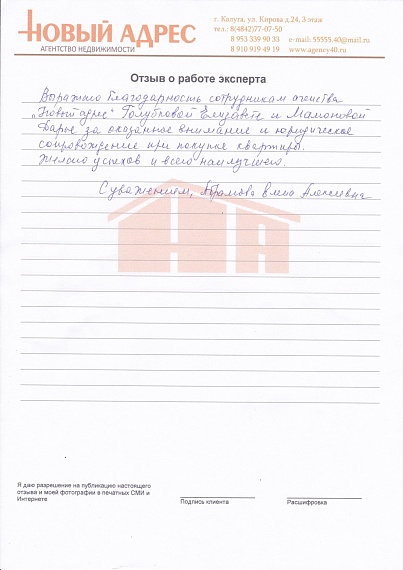 НОВЫЙ АДРЕС
АГЕНТСТВО НЕДВИЖИМОСТИ
г. Калуга, ул. Кирова д.24, 3 этаж
тел.: 8(4842)77-07-50
8 953 339 90 33 e-mail: 55555.40@mail.ru
8 910 919 49 19 www.agency40.ru
Отзыв о работе эксперта
Выражаю благодарность сотрудникам агентства
„Новый адрес" Голубковой Елизавете и Мамоновой
Дарье за оказанное внимание и юридическое
сопровождение при покупке квартиры.
Желаю успехов и всего наилучшего.
С уважением, Абрамова Алексеевна
НА
Я даю разрешение на публикацию настоящего
отзыва и моей фотографии в печатных СМИ и
Интернете
Подпись клиента
Расшифровка